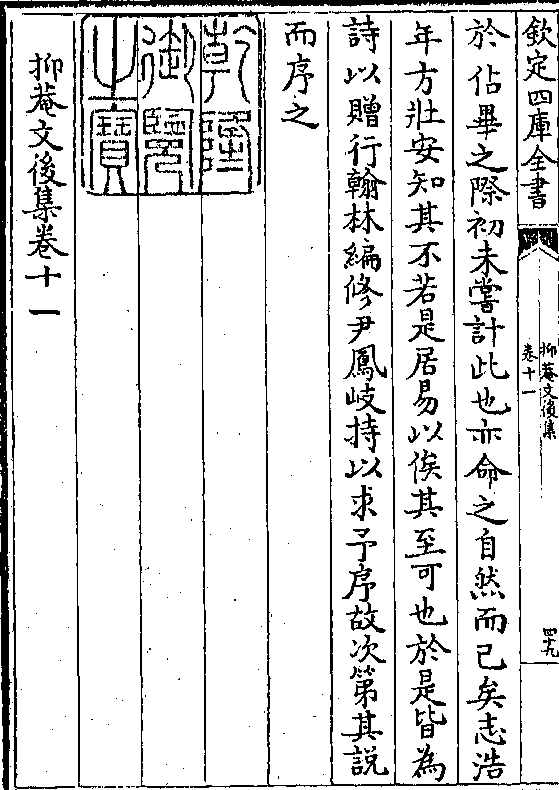 欽定四庫全書
抑菴文後集
卷十一
四十九
於佔畢之際初未嘗計此也亦命之自然而已矣志浩
年方壯安知其不若是居易以俟其至可也於是皆為
詩以贈行翰林編修尹鳳岐持以求予序故次第其説
而序之
乾隆
御覽
之寶
抑菴文後集卷十一